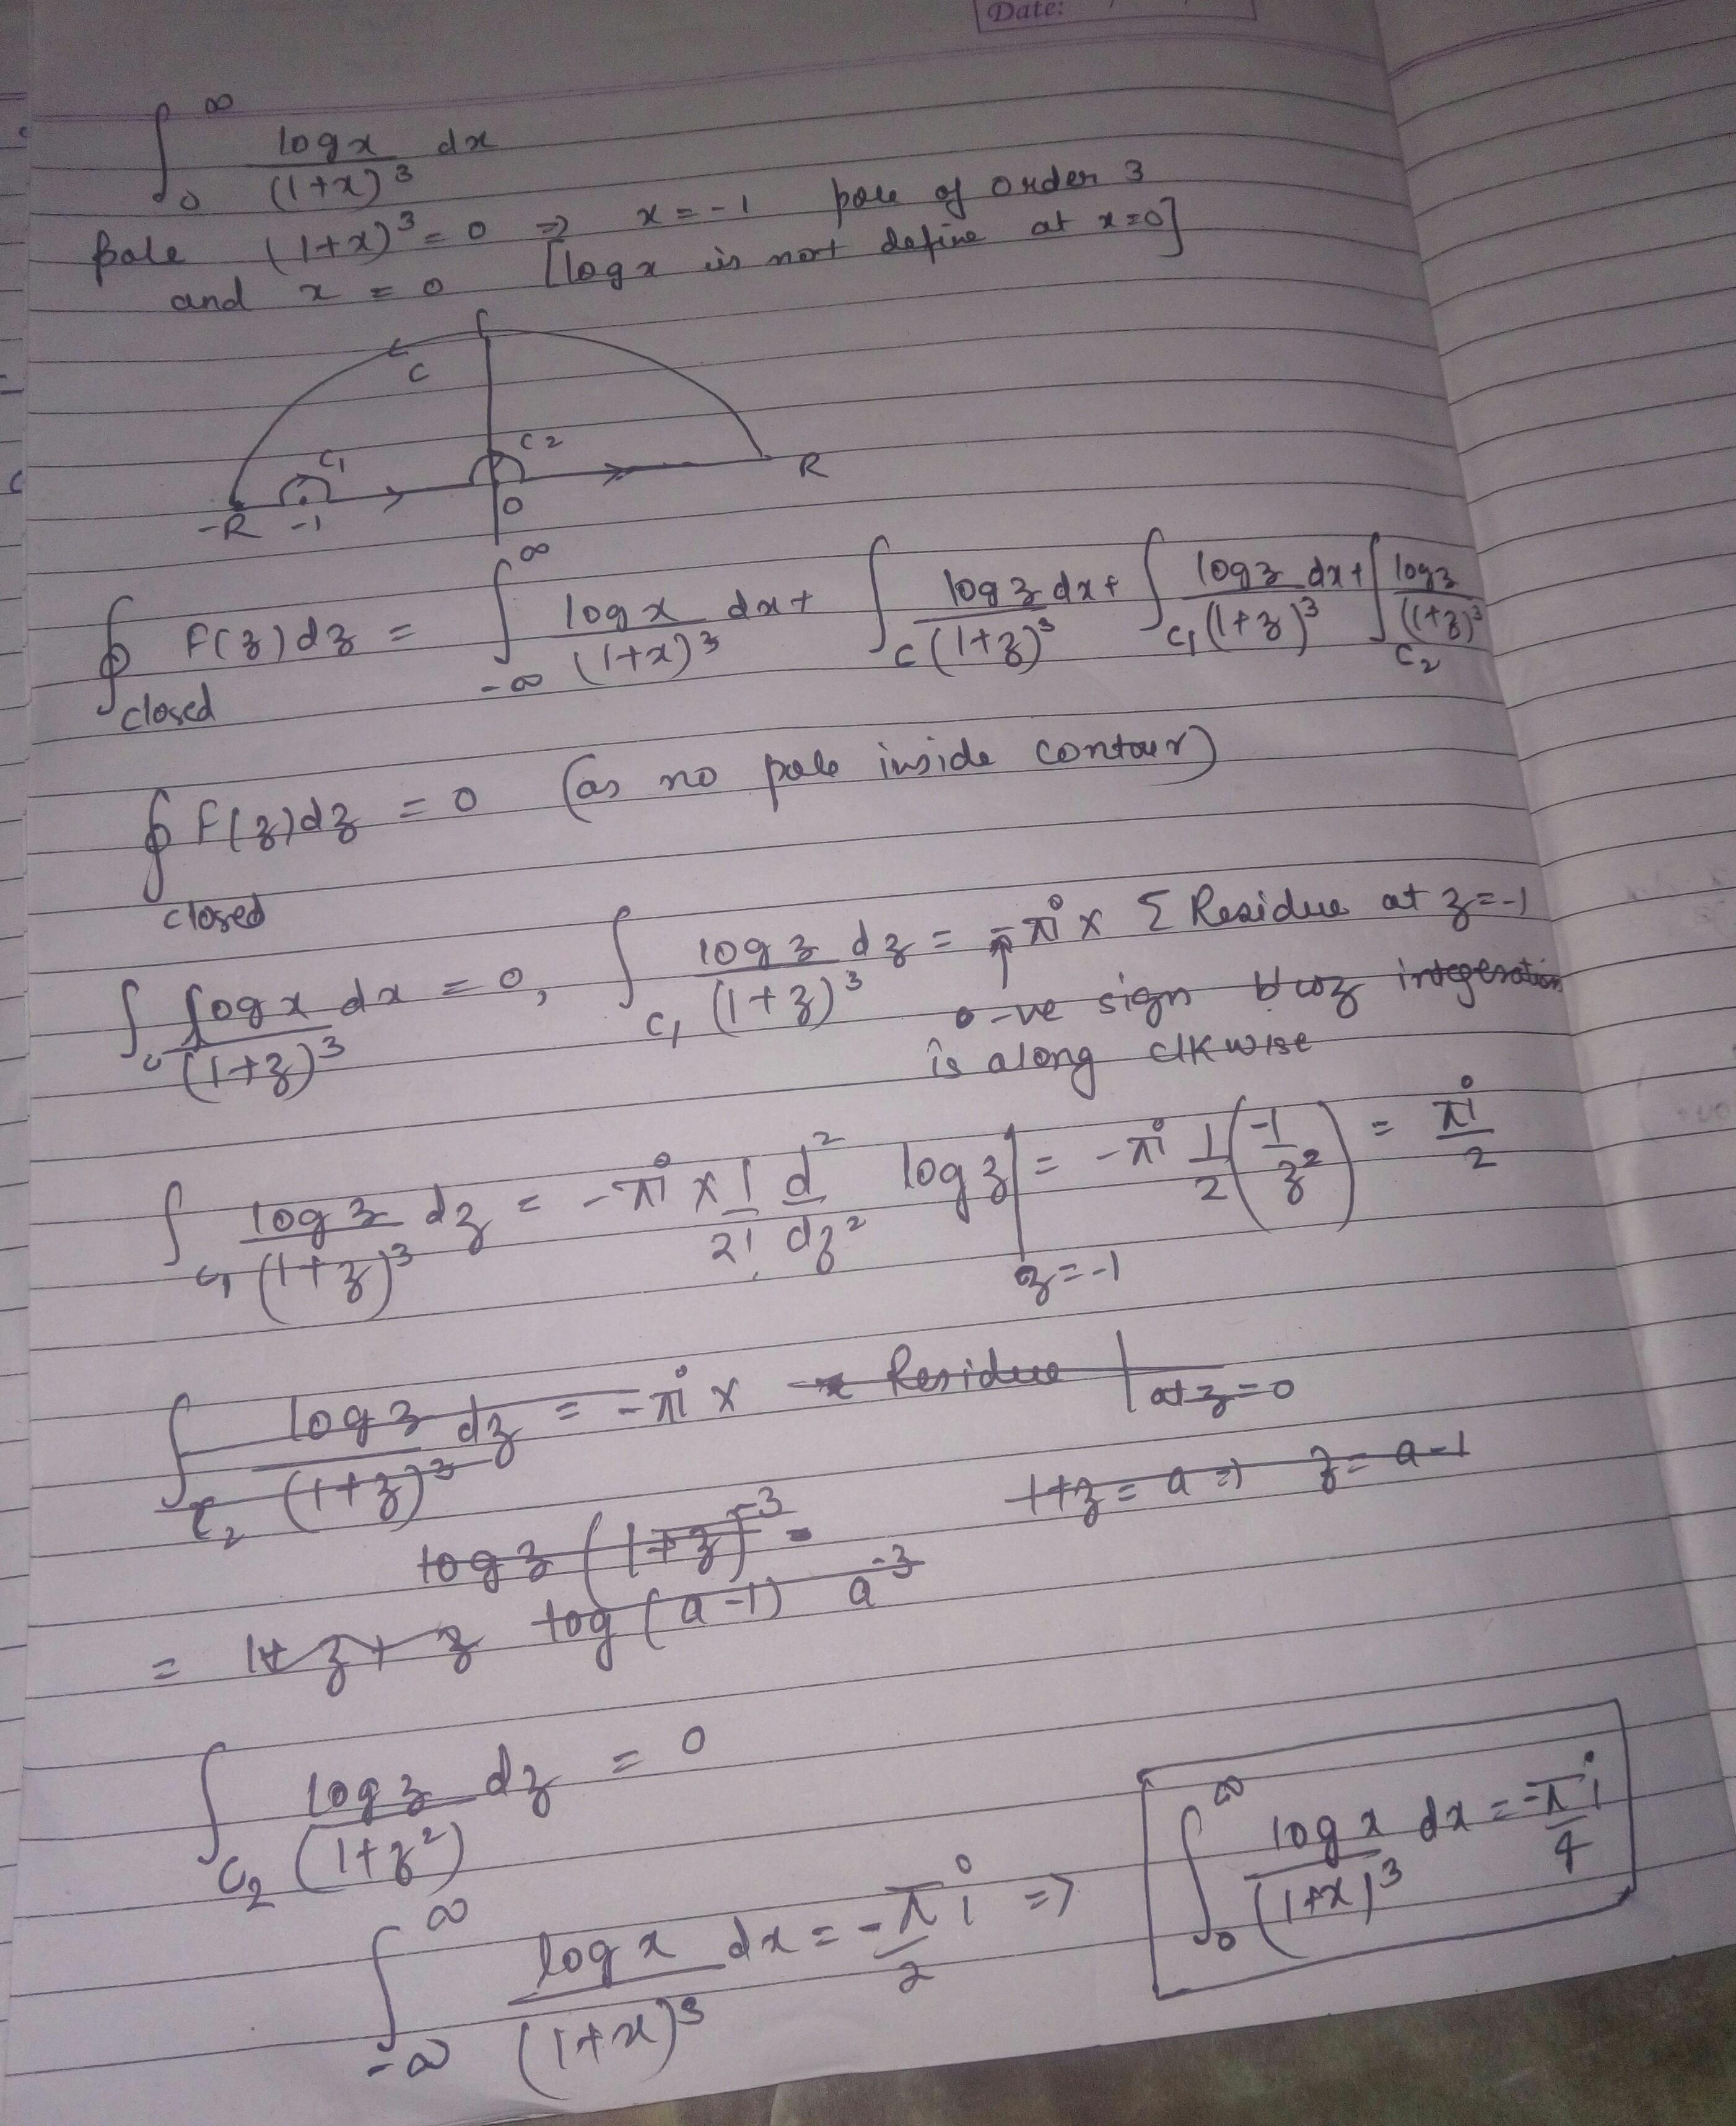 Date:
∫₀^∞ log x / (1+x)³ dx
pole (1+x)³ = 0 ⇒ x = -1 pole of order 3
and x = 0 [log x is not define at x=0]
C
C₁ C₂
-R -1 0 R
∮closed F(z)dz = ∫_{-∞}^{∞} log x / (1+x)³ dx + ∫_C log z / (1+z)³ dx + ∫_{C₁} log z / (1+z)³ dx + ∫_{C₂} log z / (1+z)³
∮closed F(z)dz = 0 (as no pole inside contour)
∫_C log x / (1+z)³ dx = 0, ∫_{C₁} log z / (1+z)³ dz = -πi x Σ Residue at z=-1
-ve sign bcoz integeration
is along clkwise
∫_{C₁} log z / (1+z)³ dz = -πi x 1/2! d²/dz² log z |_{z=-1} = -πi 1/2 (-1/z²) = πi/2
∫_{C₂} log z / (1+z)³ dz = -πi x Residue | at z=0
log z (1+z)⁻³ = 1+z = a ⇒ z = a-1
= 1+z+z log(a-1) a⁻³
∫_{C₂} log z / (1+z²) dz = 0
∫_{-∞}^{∞} log x / (1+x)³ dx = -πi/2 ⇒ ∫₀^∞ log x / (1+x)³ dx = -πi/4